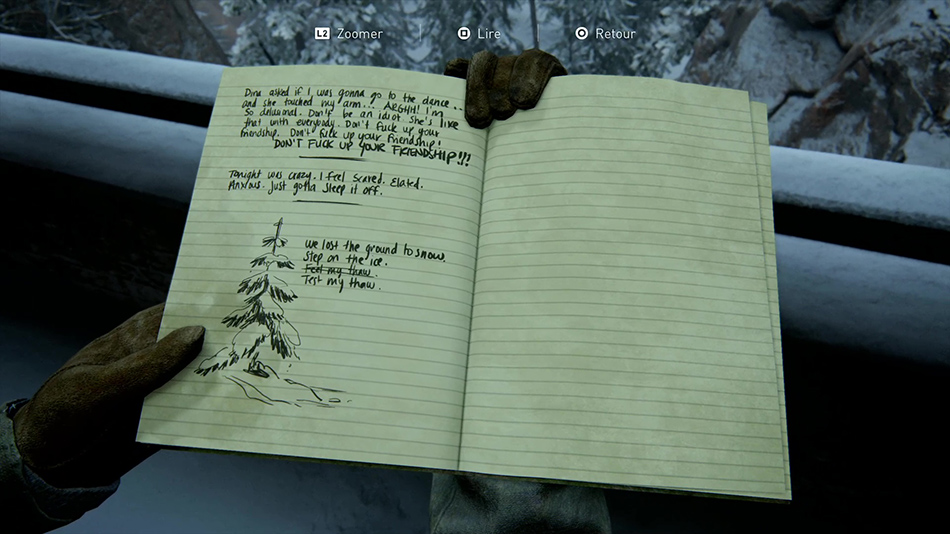 L2 Zoomer
Lire
Retour
Dina asked if I was gonna go to the dance...
and she touched my arm... ARGHH! I'm
so delusional. Don't be an idiot. She's like
that with everybody. Don't fuck up your
friendship. Don't fuck up your friendship!
DON'T FUCK UP YOUR FRIENDSHIP!!!
Tonight was crazy. I feel scared. Elated.
Anxious. Just gotta sleep it off.
We lost the ground to snow.
Step on the ice.
Feel my thaw.
Test my thaw.